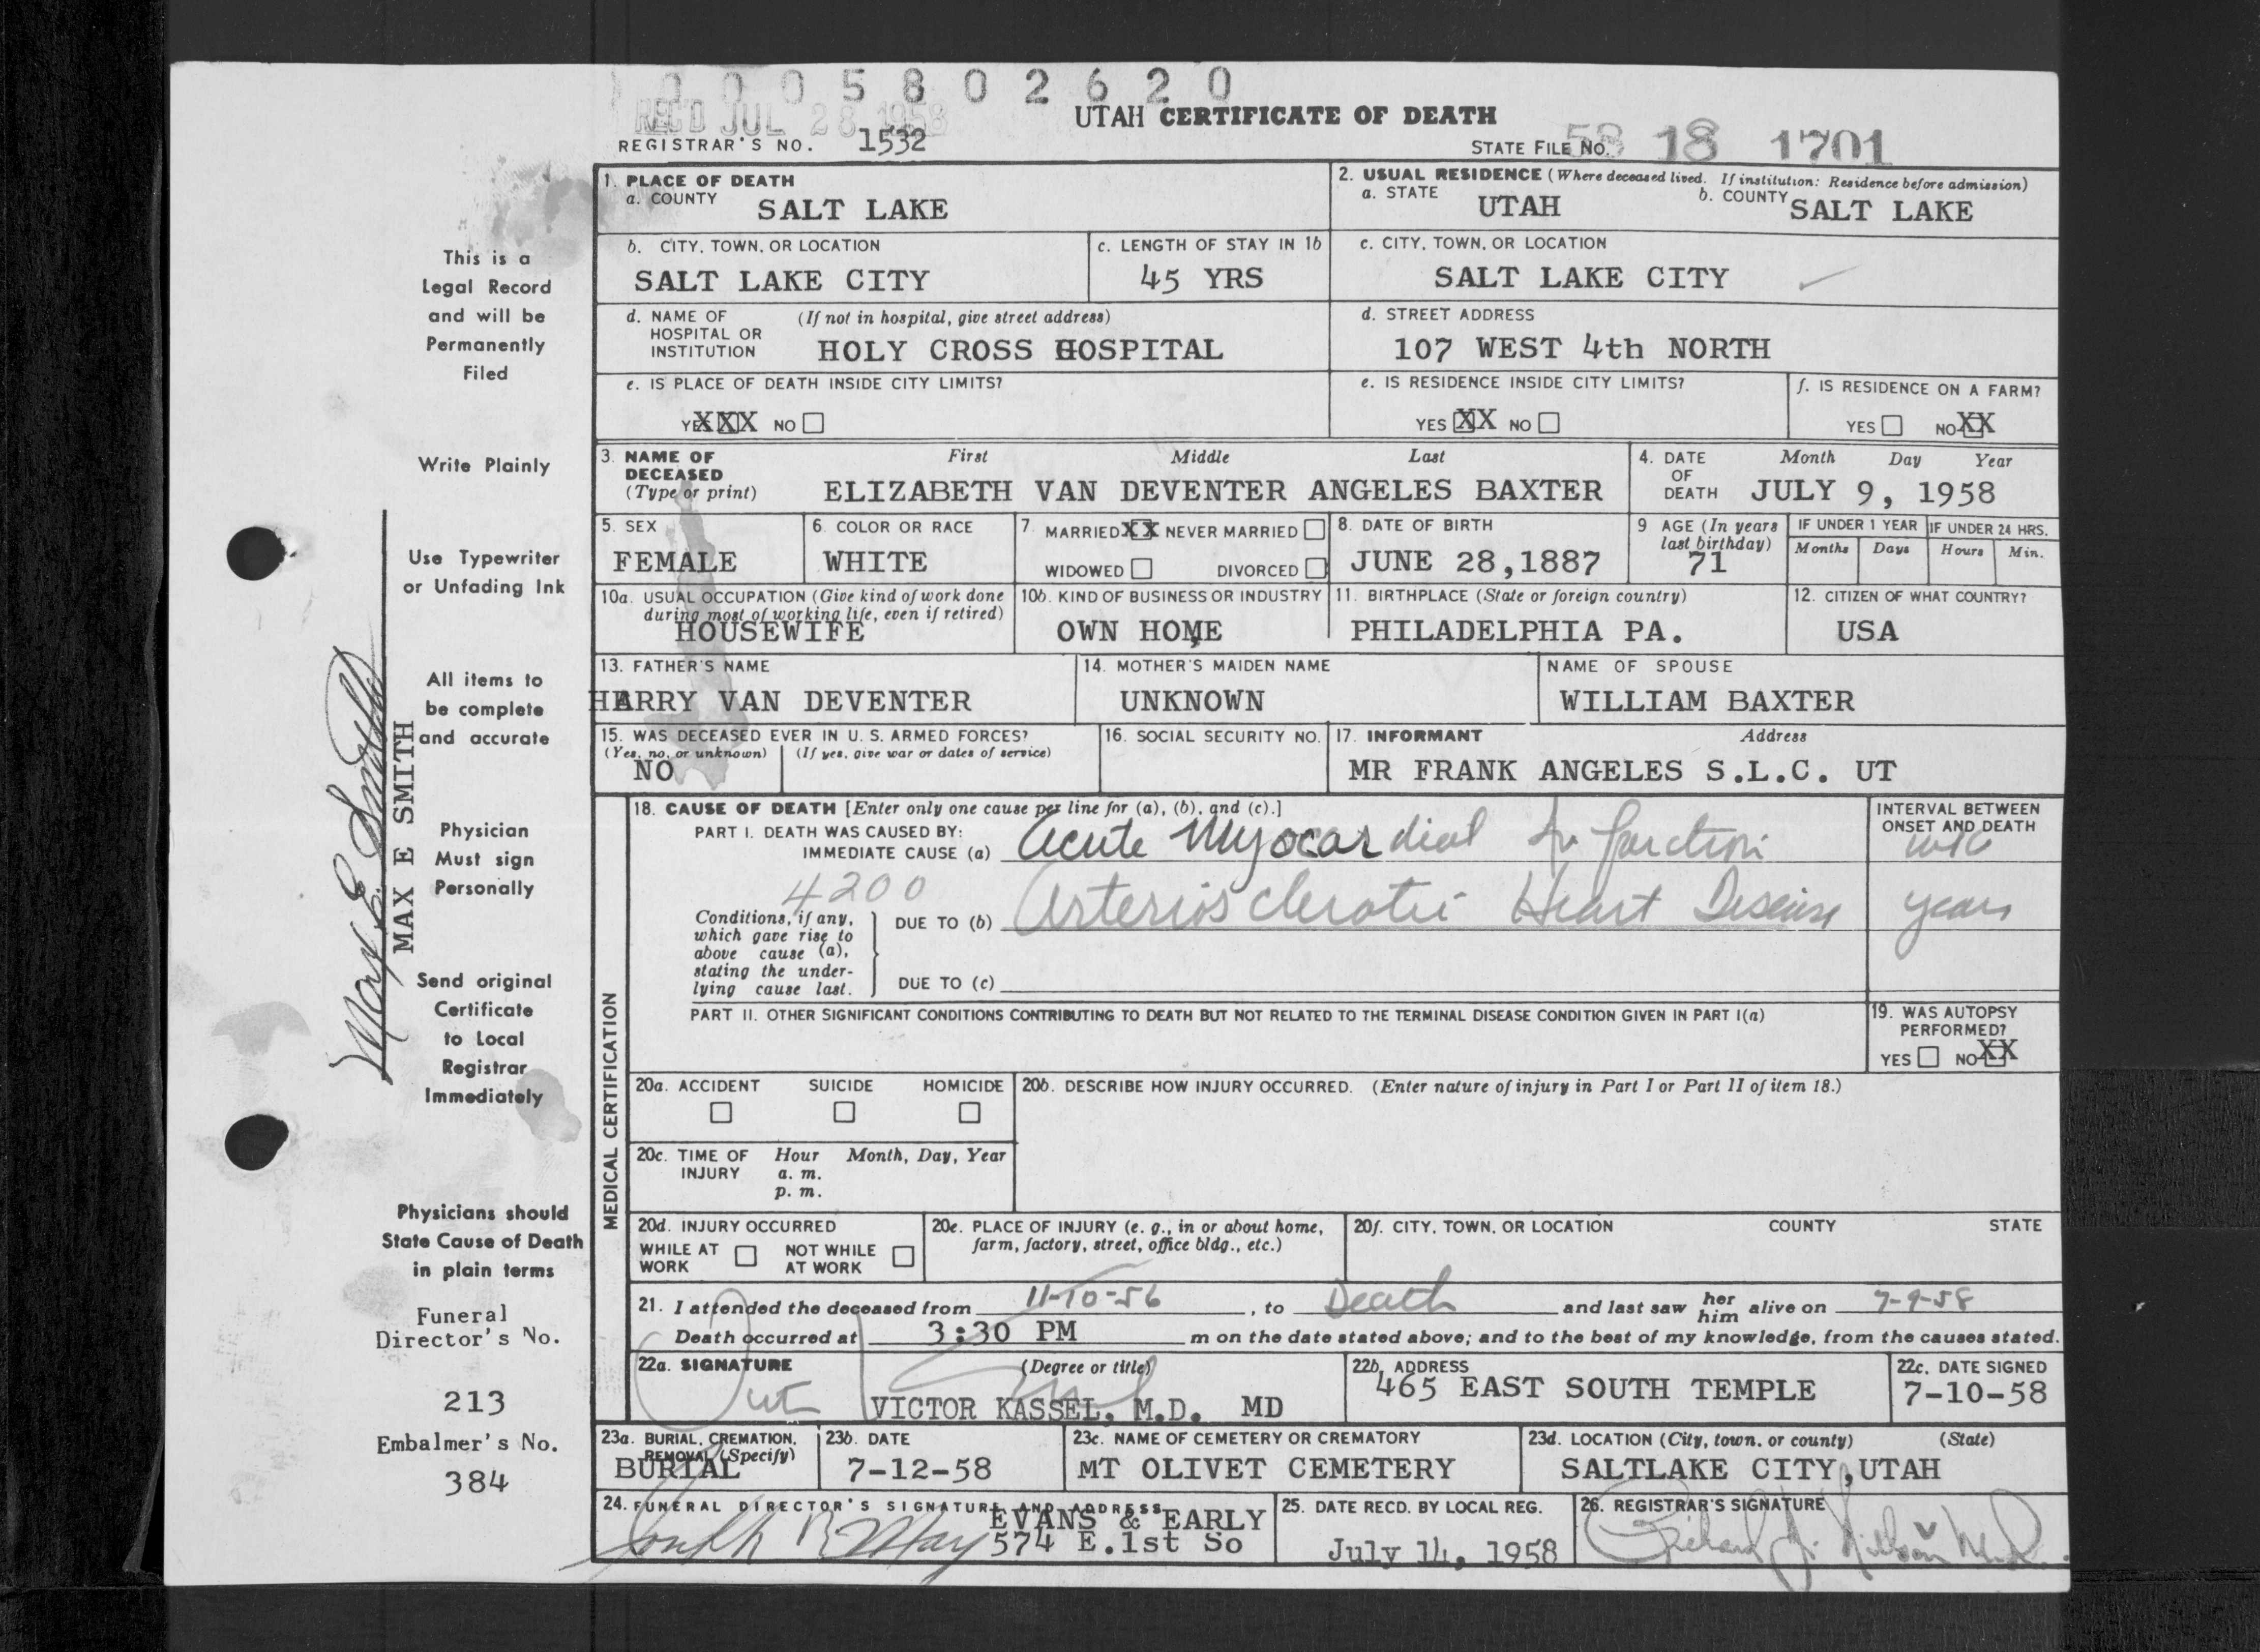 0005802620
REC'D JUL 28 1958
UTAH CERTIFICATE OF DEATH
REGISTRAR'S NO. 1532
STATE FILE NO. 58 18 1701
1. PLACE OF DEATH
a. COUNTY SALT LAKE
2. USUAL RESIDENCE (Where deceased lived. If institution: Residence before admission)
a. STATE UTAH b. COUNTY SALT LAKE
b. CITY, TOWN, OR LOCATION
SALT LAKE CITY
c. LENGTH OF STAY IN 1b
45 YRS
c. CITY, TOWN, OR LOCATION
SALT LAKE CITY
d. NAME OF HOSPITAL OR INSTITUTION (If not in hospital, give street address)
HOLY CROSS HOSPITAL
d. STREET ADDRESS
107 WEST 4th NORTH
e. IS PLACE OF DEATH INSIDE CITY LIMITS?
YES XXX NO
e. IS RESIDENCE INSIDE CITY LIMITS?
YES XX NO
f. IS RESIDENCE ON A FARM?
YES NO XX
3. NAME OF DECEASED (Type or print)
First Middle Last
ELIZABETH VAN DEVENTER ANGELES BAXTER
4. DATE OF DEATH Month Day Year
JULY 9, 1958
5. SEX
FEMALE
6. COLOR OR RACE
WHITE
7. MARRIED XX NEVER MARRIED
WIDOWED DIVORCED
8. DATE OF BIRTH
JUNE 28,1887
9 AGE (In years last birthday)
71
IF UNDER 1 YEAR IF UNDER 24 HRS.
Months Days Hours Min.
10a. USUAL OCCUPATION (Give kind of work done during most of working life, even if retired)
HOUSEWIFE
10b. KIND OF BUSINESS OR INDUSTRY
OWN HOME
11. BIRTHPLACE (State or foreign country)
PHILADELPHIA PA.
12. CITIZEN OF WHAT COUNTRY?
USA
13. FATHER'S NAME
HARRY VAN DEVENTER
14. MOTHER'S MAIDEN NAME
UNKNOWN
NAME OF SPOUSE
WILLIAM BAXTER
15. WAS DECEASED EVER IN U. S. ARMED FORCES?
(Yes, no, or unknown) (If yes, give war or dates of service)
NO
16. SOCIAL SECURITY NO.
17. INFORMANT Address
MR FRANK ANGELES S.L.C. UT
MEDICAL CERTIFICATION
18. CAUSE OF DEATH [Enter only one cause per line for (a), (b), and (c).]
PART I. DEATH WAS CAUSED BY:
IMMEDIATE CAUSE (a) Acute Myocardial Infarction
INTERVAL BETWEEN ONSET AND DEATH
wk
4200
Conditions, if any, which gave rise to above cause (a), stating the underlying cause last.
DUE TO (b) Arteriosclerotic Heart Disease years
DUE TO (c)
PART II. OTHER SIGNIFICANT CONDITIONS CONTRIBUTING TO DEATH BUT NOT RELATED TO THE TERMINAL DISEASE CONDITION GIVEN IN PART I(a)
19. WAS AUTOPSY PERFORMED?
YES NO XX
20a. ACCIDENT SUICIDE HOMICIDE
20b. DESCRIBE HOW INJURY OCCURRED. (Enter nature of injury in Part I or Part II of item 18.)
20c. TIME OF INJURY Hour Month, Day, Year
a. m.
p. m.
20d. INJURY OCCURRED
WHILE AT WORK NOT WHILE AT WORK
20e. PLACE OF INJURY (e. g., in or about home, farm, factory, street, office bldg., etc.)
20f. CITY, TOWN, OR LOCATION COUNTY STATE
21. I attended the deceased from 11-10-56, to Death and last saw her him alive on 7-9-58
Death occurred at 3:30 PM m on the date stated above; and to the best of my knowledge, from the causes stated.
22a. SIGNATURE (Degree or title)
VICTOR KASSEL, M.D. MD
22b. ADDRESS
465 EAST SOUTH TEMPLE
22c. DATE SIGNED
7-10-58
23a. BURIAL, CREMATION, REMOVAL (Specify)
BURIAL
23b. DATE
7-12-58
23c. NAME OF CEMETERY OR CREMATORY
MT OLIVET CEMETERY
23d. LOCATION (City, town, or county) (State)
SALTLAKE CITY, UTAH
24. FUNERAL DIRECTOR'S SIGNATURE AND ADDRESS
EVANS & EARLY
574 E.1st So
25. DATE RECD. BY LOCAL REG.
July 14, 1958
26. REGISTRAR'S SIGNATURE
This is a
Legal Record
and will be
Permanently
Filed
Write Plainly
Use Typewriter
or Unfading Ink
All items to
be complete
and accurate
Physician
Must sign
Personally
Send original
Certificate
to Local
Registrar
Immediately
Physicians should
State Cause of Death
in plain terms
Funeral
Director's No.
213
Embalmer's No.
384
Max E. Smith
MAX E SMITH